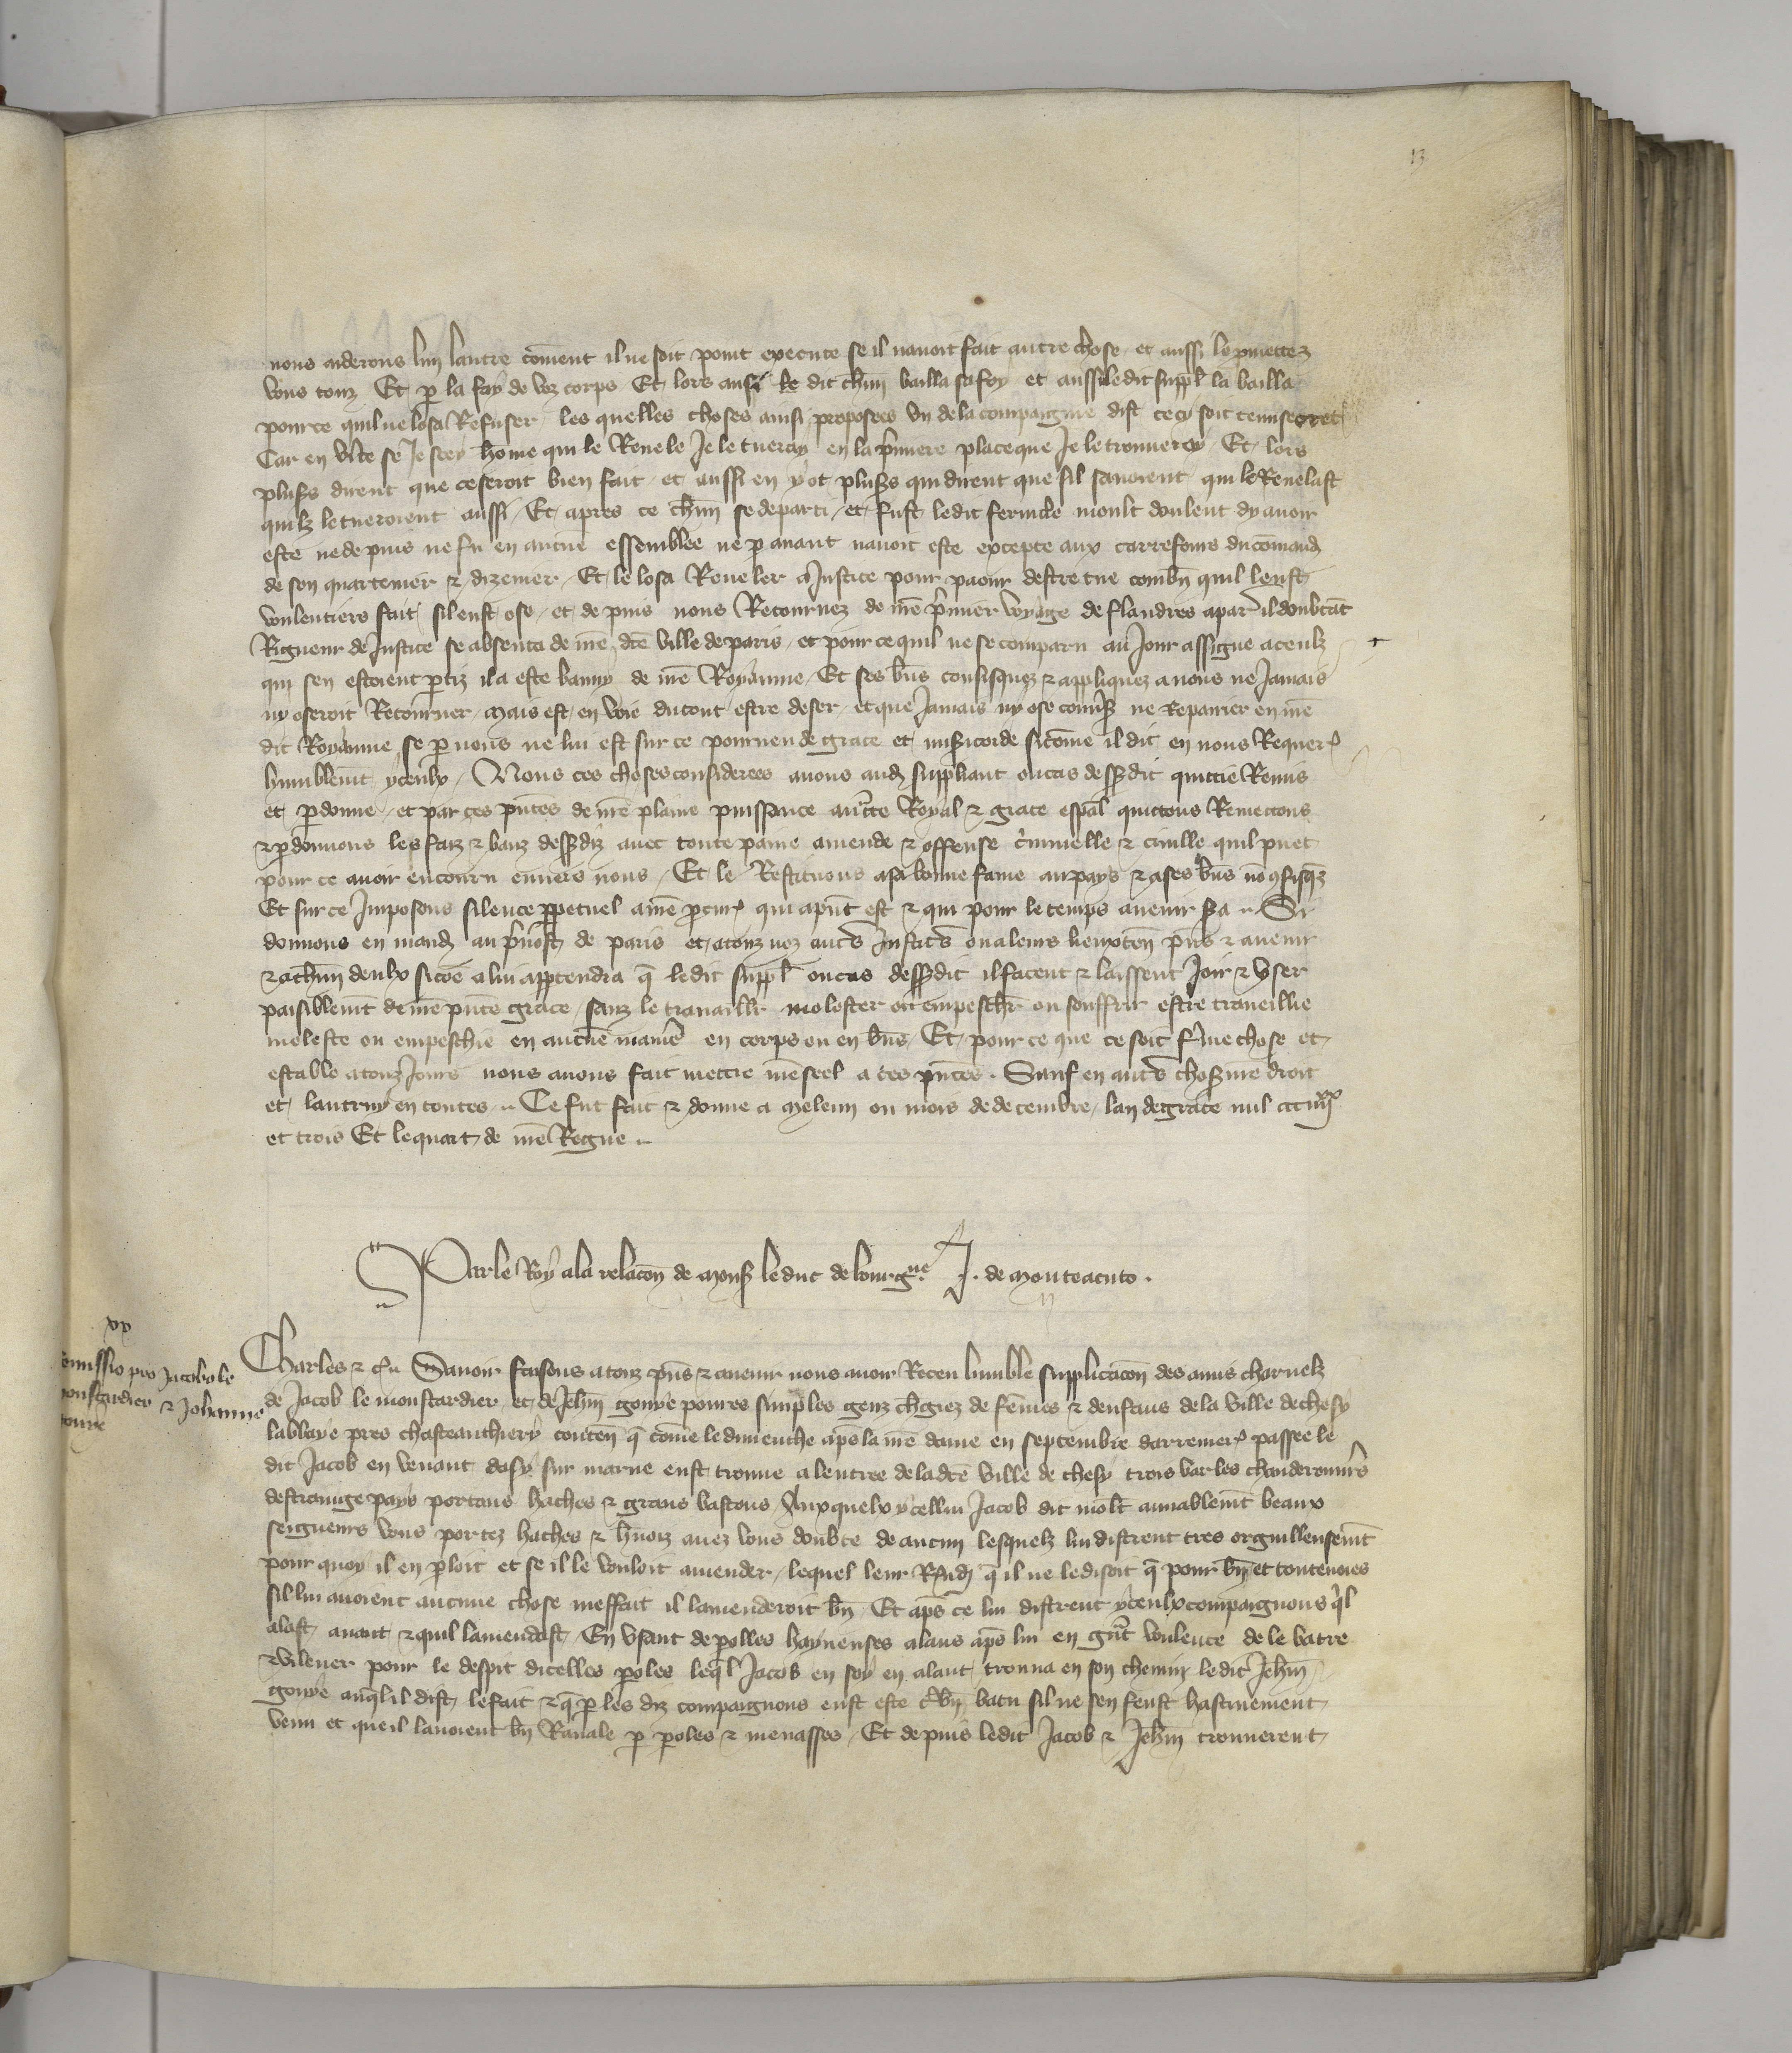 13
nous aiderons lun lautre coment il ne soit point execute se il navoit fait autre chose et aussi le pmettez
vous touz Et p la foy de voz corps Et lors aussi le dit chun bailla sa foy et aussi ledit suppl la bailla
pource quil ne losa Refuser les quelles choses ainsi proposees un de la compaignie dist cecy soit tenu secret
Car en vite se Je scey home qui le Revele Je le tueray en la pmiere place que Je le trouveray Et lors
plus's dirent que ce seroit bien fait et aussi en y ot plus's qui dirent que sil savoient qui le Revelast
quilz le tueroient aussi Et apres ce chun se departi et fust ledit moult doulent dy avoir
este ne depuis ne fu en aucue essemblee ne p avant navoit este excepte aux carrefours du comand
de son quartenier & dizenier Et le losa Reveler a Justice pour paour destre tue combn quil leust
voulentiers fait sil eust ose et depuis nous Retournez de nre pmier voyage de flandres a par il doubtat
Rigueur de Justice se absenta de nre dte ville de paris et pour ce quil ne se comparu au Jour assigne a ceulz
qui sen estoient ptiz il a este banny de nre Royaume Et ses bns confisquez & appliquez a nous ne Jamais
ny oseroit Retourner mais est en voie du tout estre desert et que Jamais ny ose ne Repairier en nre
dit Royaume se p nous ne lui est sur ce pourveu de grace et misicorde sicome il dit en nous Requer
humblemt yceulx Nous ces choses considerees avons aud suppliant ou cas dessusdit quictie Remis
et pdonne et par ces pntes de nre plaine puissance aucte Royal & grace espal quictons Remectons
& pdonnons les faiz & banz dessusdiz avec toute paine amende & offense c'minelle & civille quil puet
pour ce avoir encouru envers nous Et le Restituons a sa bonne fame au pays & a ses bns no 9fisqz
Et sur ce Imposons silence ppetuel a nre pcur qui a pnt est & qui pour le temps avenir sa Si
donnons en mand au pvost de paris et a touz noz autrs Justic's ou a leurs lieuxten pns & avenir
& a chun deulx sicoe a lui apptendra q ledit suppl ou cas dessusdit il facent & laissent Joir & user
paisiblemt de nre pnte grace sanz le travaillr molester ou empeschr ou souffrir estre traveillie
moleste ou empeschie en aucue manie en corps ou en bns Et pour ce que ce soit ferme chose et
estable a touz Jours nous avons fait mettre nre seel a ces pntes Sauf en autrs choses nre droit
et lautruy en toutes Ce fut fait & donne a meleun ou mois de decembre lan de grace mil CCC IIIIxx
et trois Et le quart de nre Regne
Par le Roy a la relacon de mons leduc de bourgne J. de monteacuto.
xx
Remissio pro Jacobo le
moustardier & Johanne
gouye
Charles & cu Savoir faisons a touz pns & avenir nous avoir Receu lumble supplicacon des amis charnelz
de Jacob le moustardier et de Jehn gouye povres simples genz chgiez de femes & denfans de la ville de chesy
labbaye pres chasteauthiery conten q come le dimenche aps la nre dame en septembre darrenier passee le
dit Jacob en venant dasy sur marne eust trouve a lentree de ladte ville de chesy trois varles chauderonniers
destrange pays portans haches & grans bastons Auxquelx ycellui Jacob dit molt amiablemt beaux
seigneurs vous portez haches & avez vous doubte de aucun lesquelz lui distrent tres orguilleusemt
pour quoy il en ploit et se il le vouloit amender lequel leur Rndi q il ne le disoit q pour bn et toutevoies
sil lui avoient aucune chose meffait il lamenderoit bn Et aps ce lui distrent yceulx compaignons ql
alast avant & quil lamendast En usant de polles haynenses alans aps lui en gnt voulente de le batre
& vilener pour le despit dicelles poles leql Jacob en soy en alant trouva en son chemin ledit Jehn
gouye auql il dist lefait & q p les diz compaignons eust este t'sbn batu sil ne sen feust hastivement
venu et que il lavoient bn Ravale p poles & menasses Et depuis ledit Jacob & Jehn trouverent